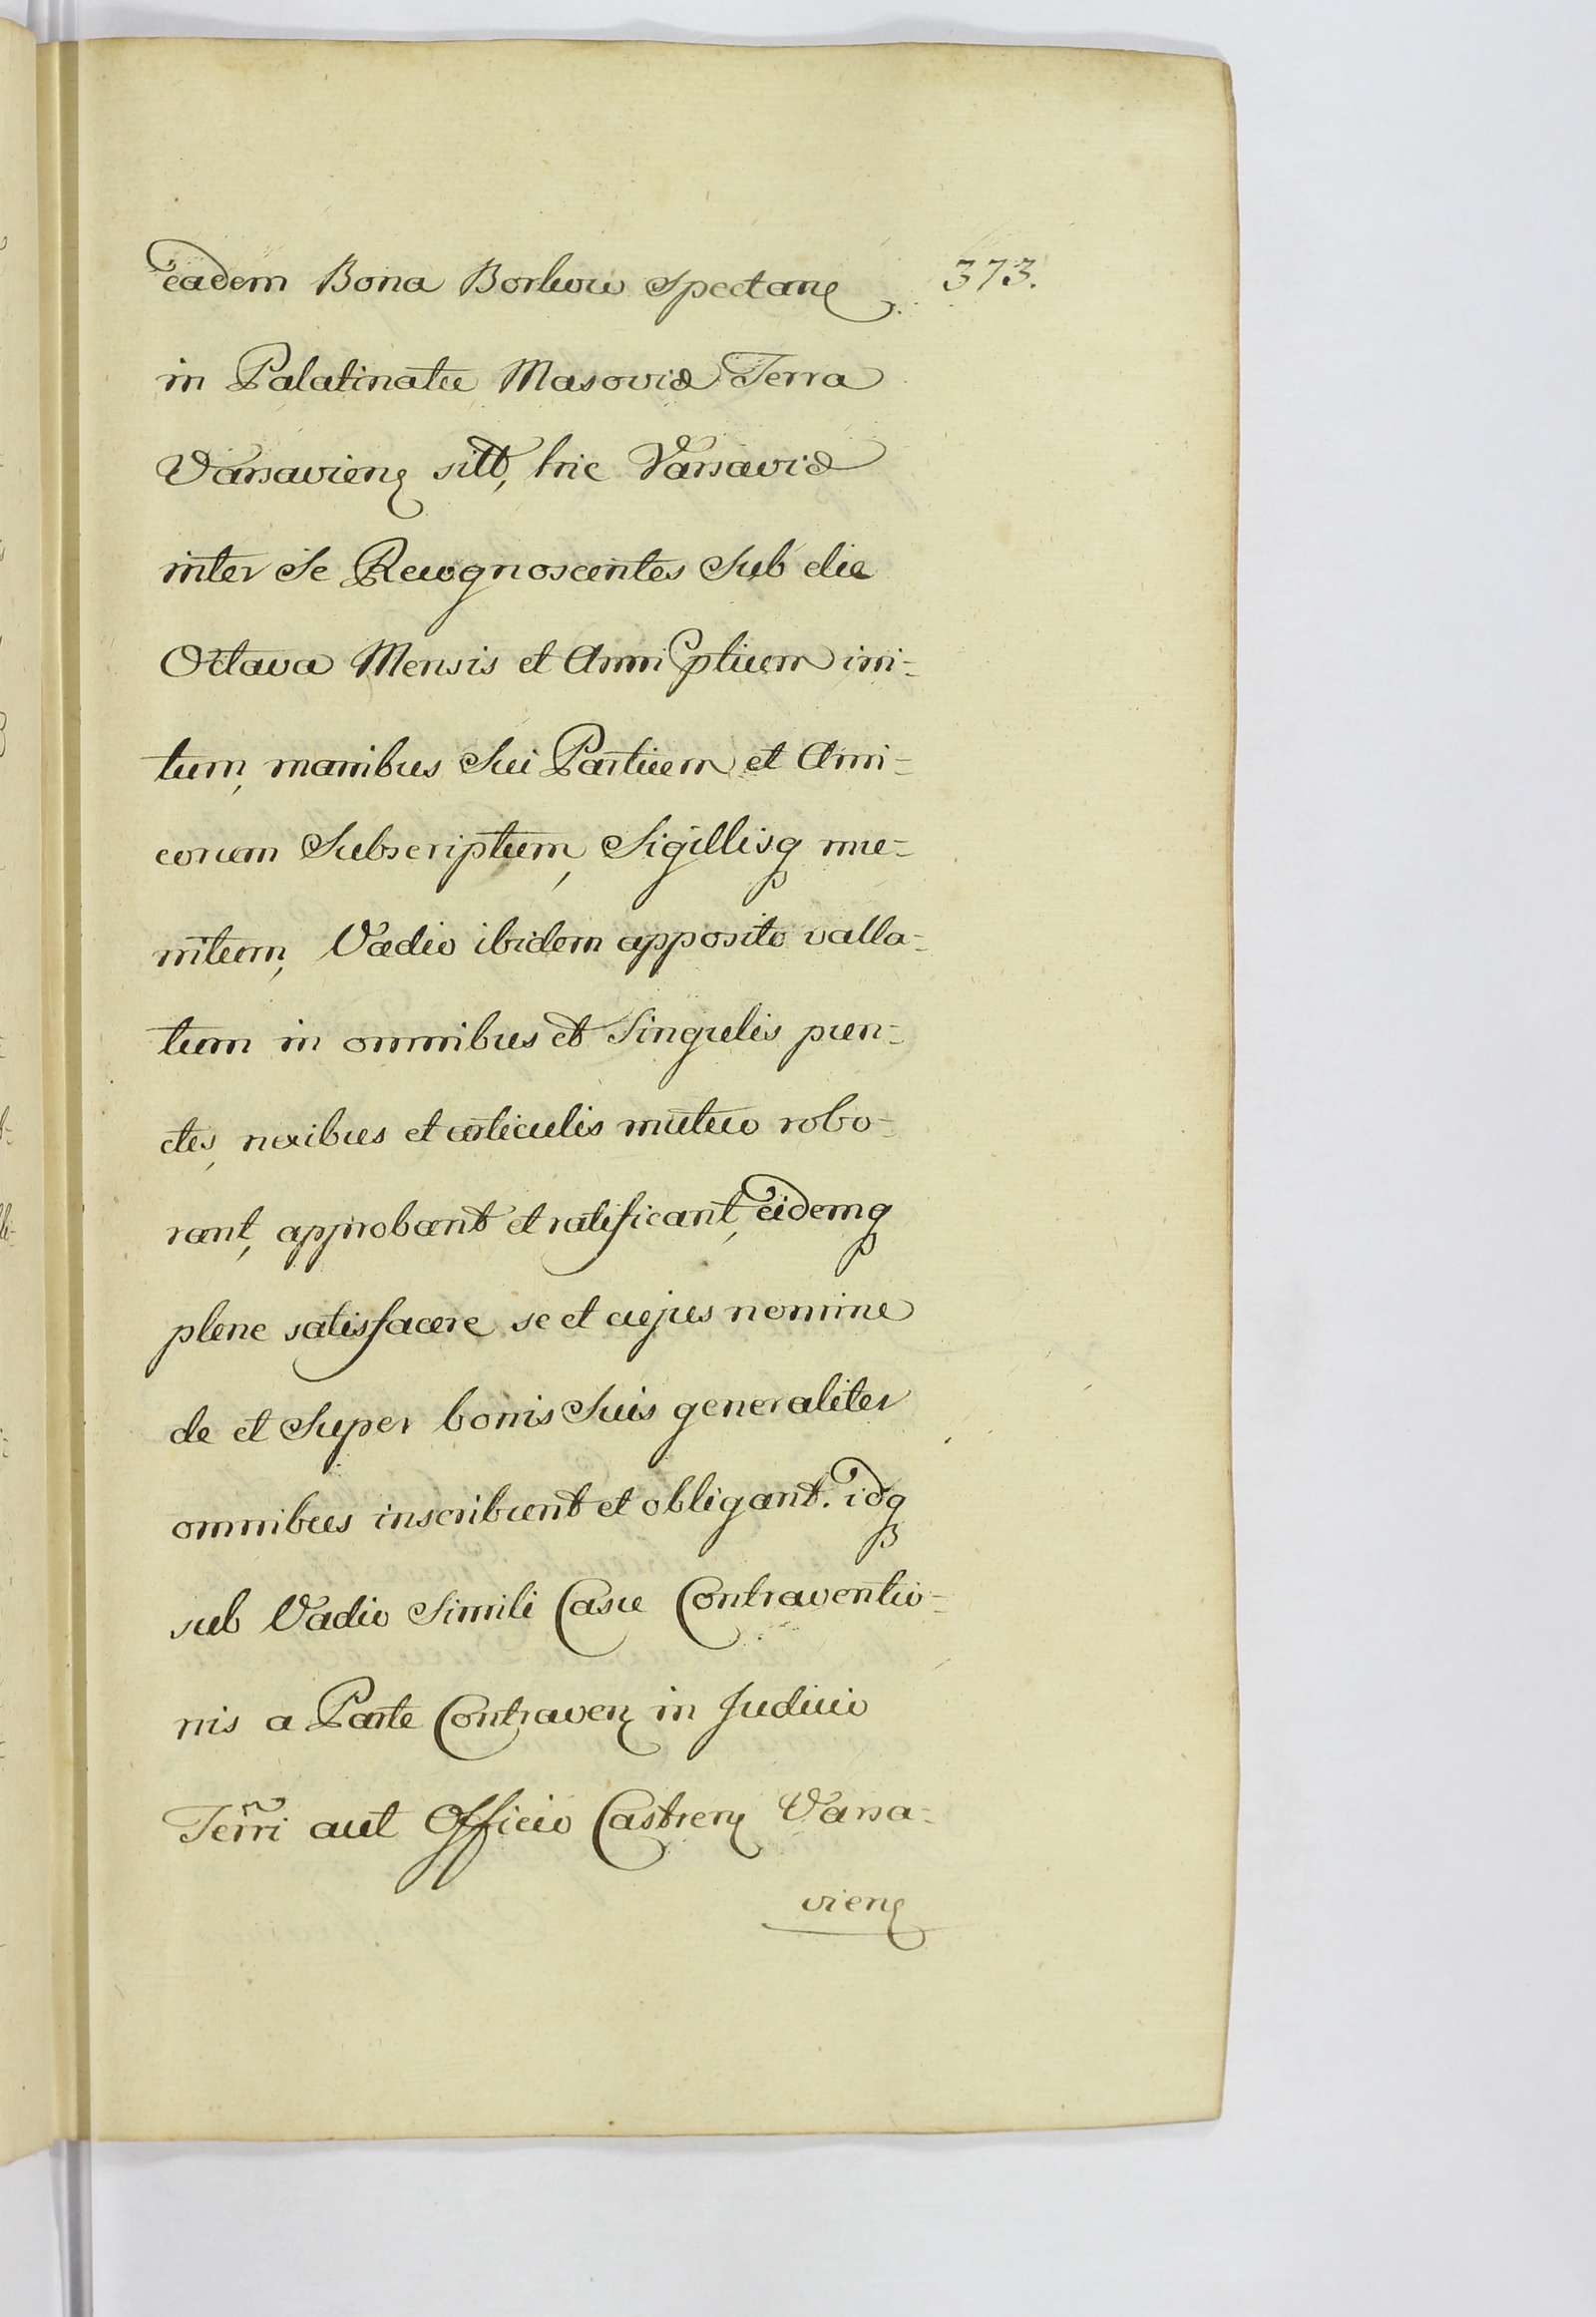 eadem Bona Borkow Spectan 373.
in Palatinatu Masoviæ Terra
Varsavien sitt, hic Varsaviæ
inter Se Recognoscentes Sub die
Octava Mensis et Anni ptium ini=
tum, manibus Sui Partium et Ami=
corum Subscriptum, Sigillisq mu=
nitum, Vadio ibidem apposito valla=
tum in omnibus et Singulis pun=
ctis, nexibus et articulis mutuo robo=
rant, approbant et ratificant, eidemq
plene satisfacere se et cujus nomine
de et Super bonis Suis generaliter
omnibus inscribunt et obligant. idq
sub Vadio Simili Casu Contraventio=
nis a Parte Contraven in Judicio
Terri aut Officio Castren Varsa=
vien